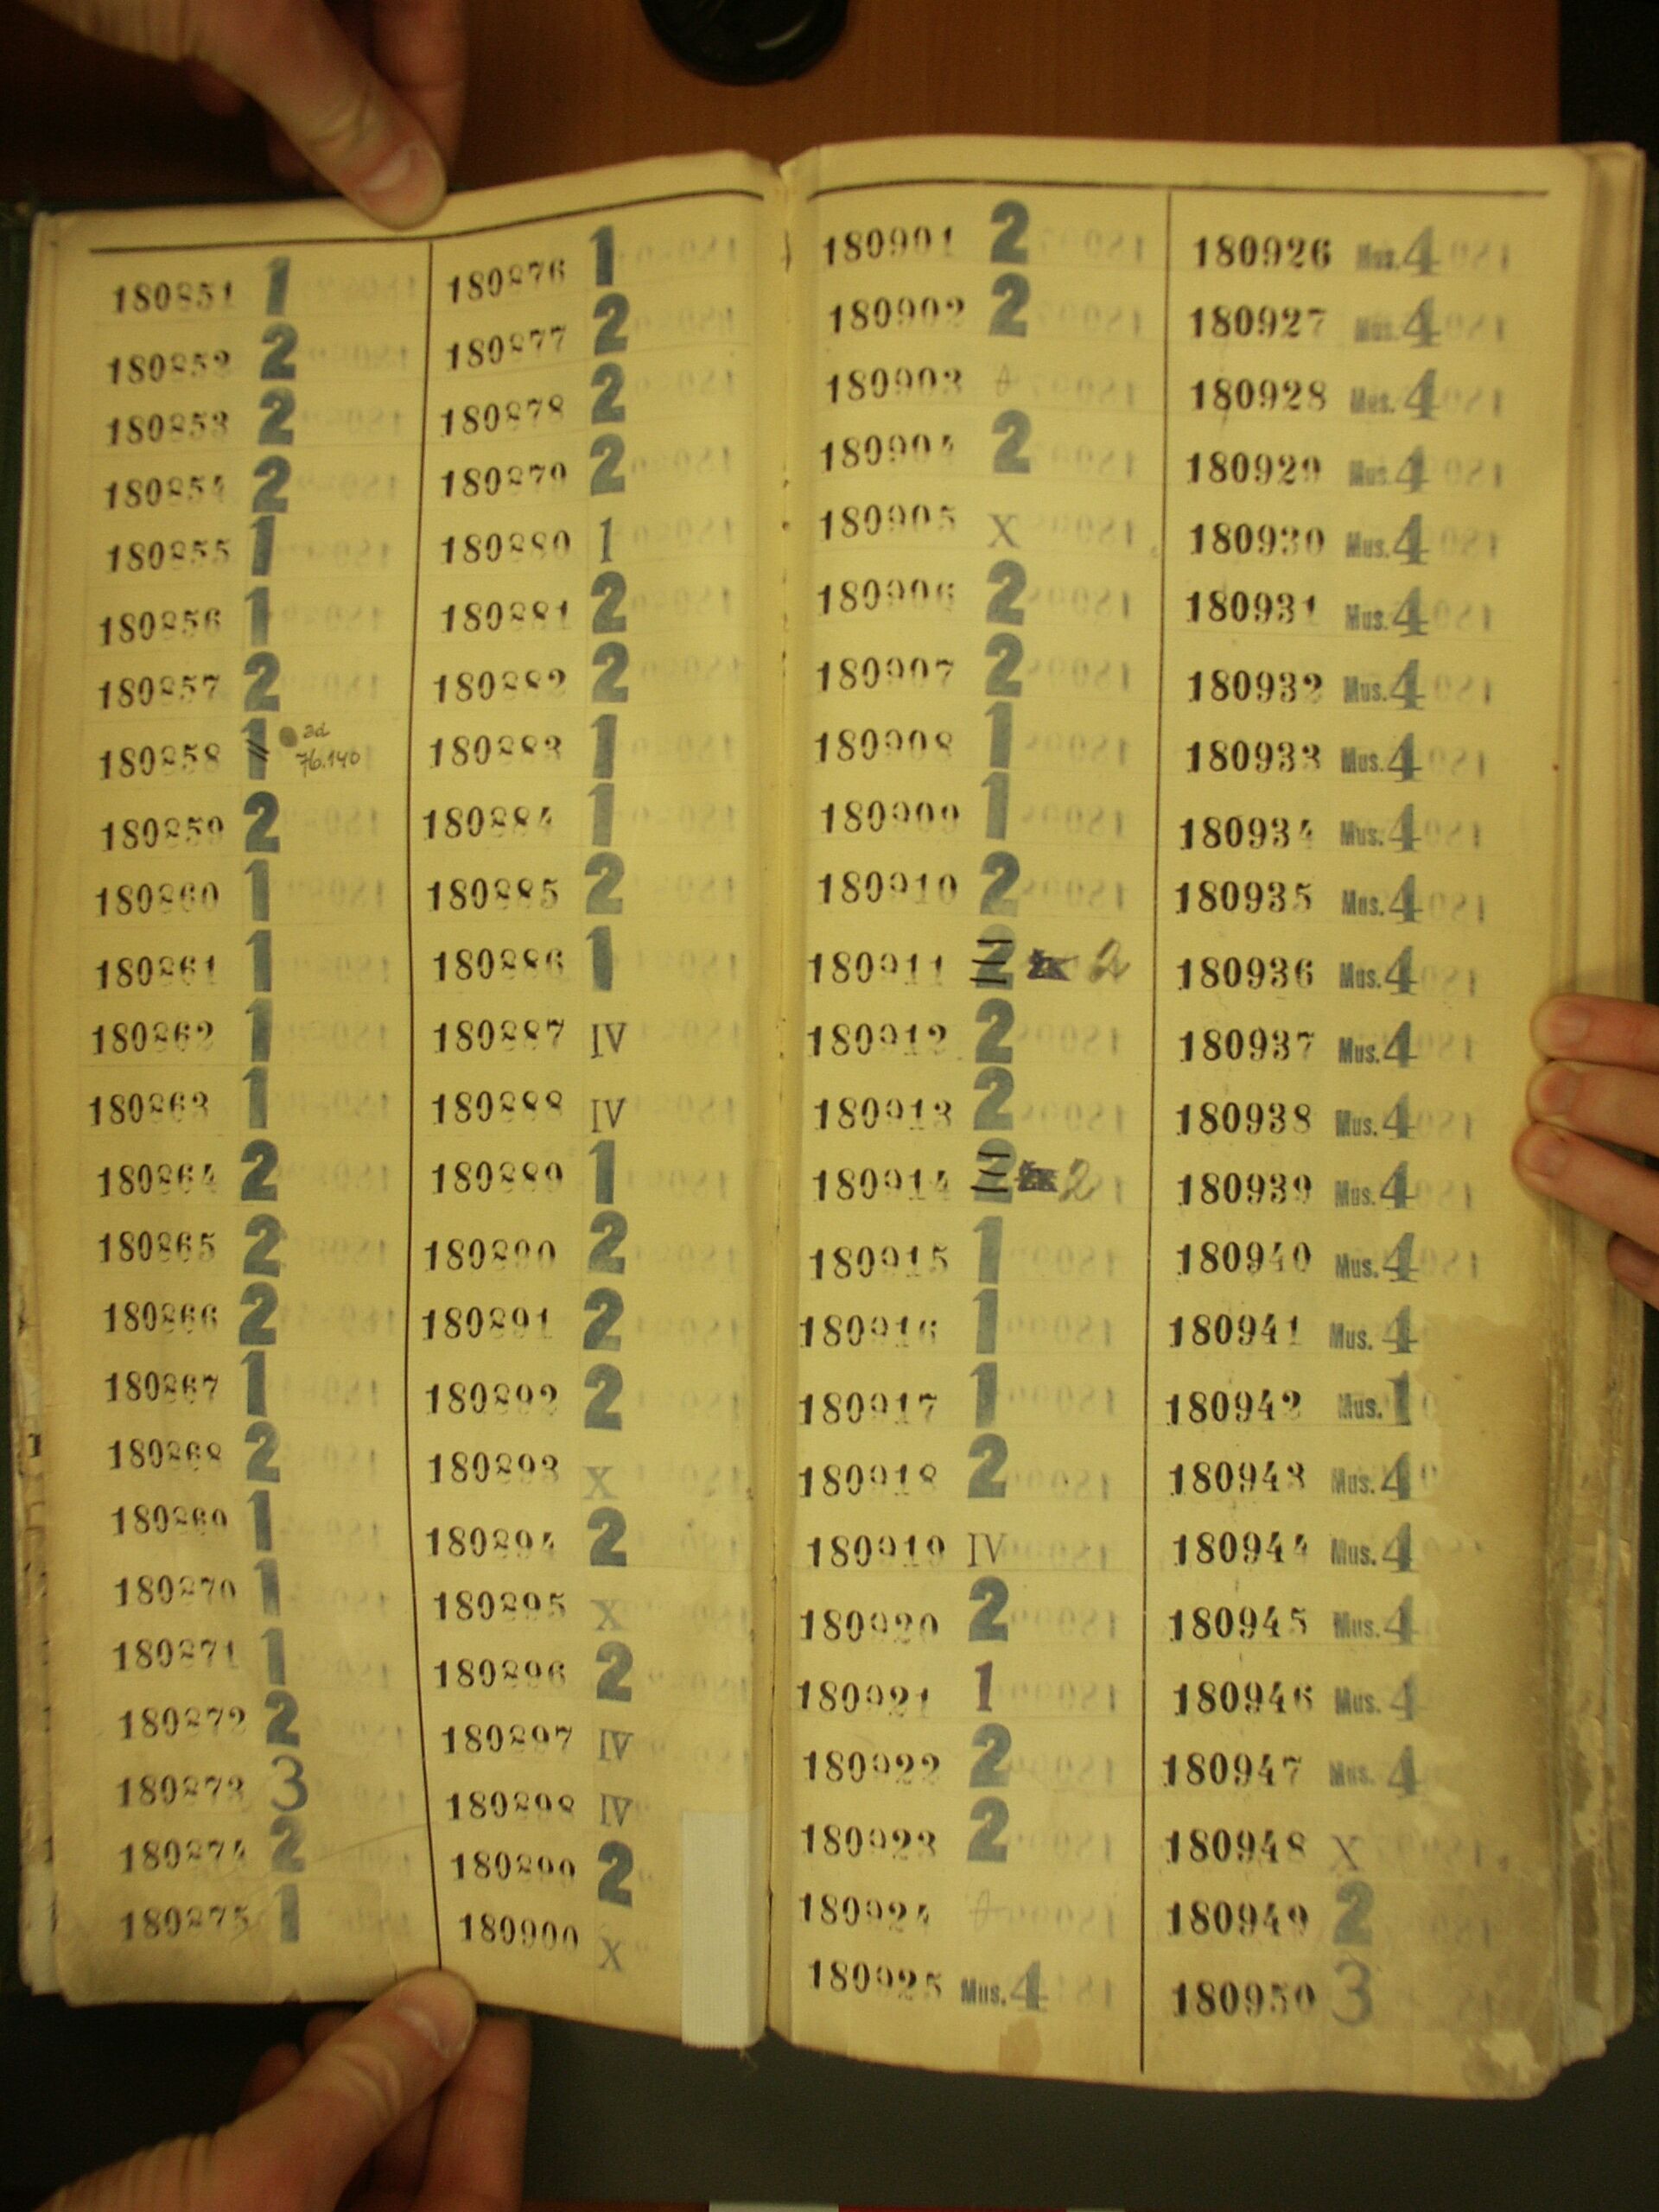 180851 1
180852 2
180853 2
180854 2
180855 1
180856 1
180857 2
180858 1 ad
76.140
180859 2
180860 1
180861 1
180862 1
180863 1
180864 2
180865 2
180866 2
180867 1
180868 2
180869 1
180870 1
180871 1
180872 2
180873 3
180874 2
180875 1
180876 1
180877 2
180878 2
180879 2
180880 1
180881 2
180882 2
180883 1
180884 1
180885 2
180886 1
180887 IV
180888 IV
180889 1
180890 2
180891 2
180892 2
180893 X
180894 2
180895 X
180896 2
180897 IV
180898 IV
180899 2
180900 X
180901 2
180902 2
180903
180904 2
180905 X
180906 2
180907 2
180908 1
180909 1
180910 2
180911 2 2
180912 2
180913 2
180914 2 2
180915 1
180916 1
180917 1
180918 2
180919 IV
180920 2
180921 1
180922 2
180923 2
180924
180925 Mus. 4
180926 Mus. 4
180927 Mus. 4
180928 Mus. 4
180929 Mus. 4
180930 Mus. 4
180931 Mus. 4
180932 Mus. 4
180933 Mus. 4
180934 Mus. 4
180935 Mus. 4
180936 Mus. 4
180937 Mus. 4
180938 Mus. 4
180939 Mus. 4
180940 Mus. 4
180941 Mus. 4
180942 Mus. 1
180943 Mus. 4
180944 Mus. 4
180945 Mus. 4
180946 Mus. 4
180947 Mus. 4
180948 X
180949 2
180950 3